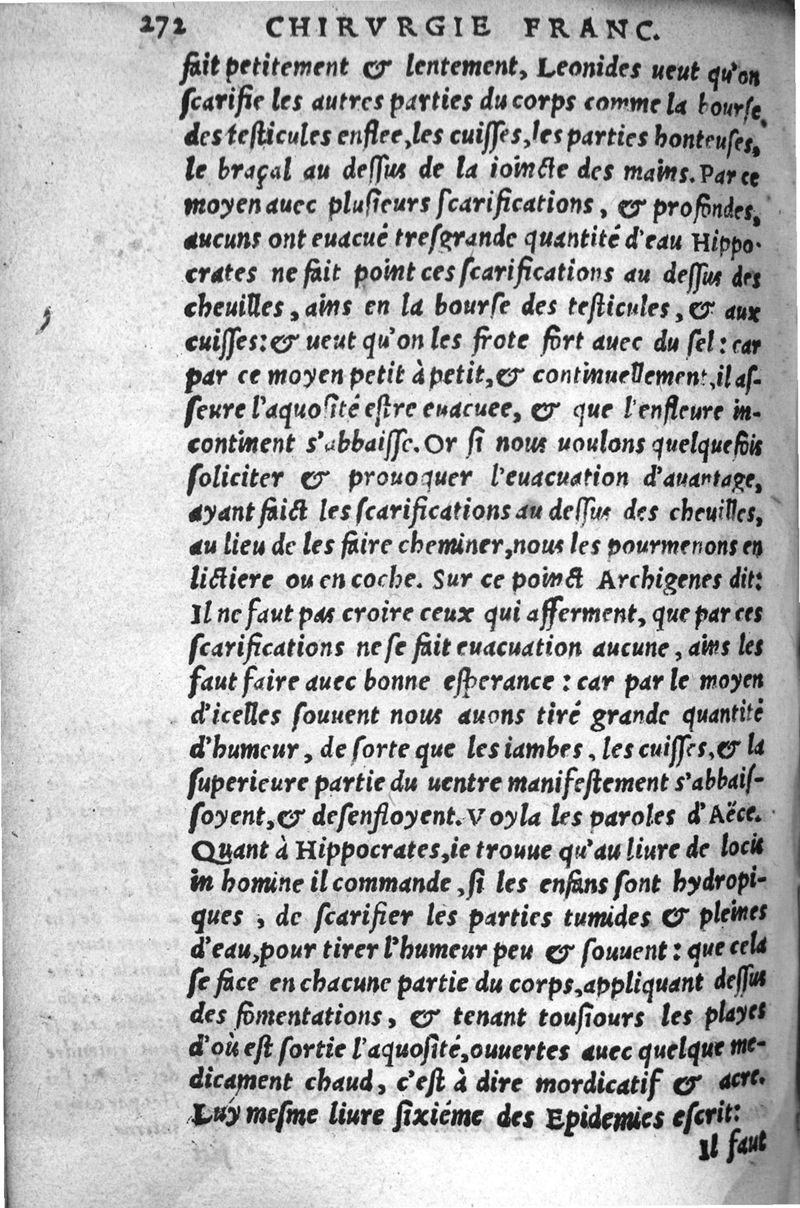 272 CHIRVRGIE FRANC.
fait petitement & lentement, Leonides ueut qu'on
ſcarifie les autres parties du corps comme la bourſe
des teſticules enflee,les cuiſſes,les parties honteuſes,
le braçal au deſſus de la ioincte des mains. Par ce
moyen auec pluſieurs ſcarifications, & profondes,
aucuns ont euacué treſgrande quantité d'eau Hippo-
crates ne fait point ces ſcarifications au deſſus des
cheuilles, ains en la bourſe des teſticules, & aux
cuiſſes:& ueut qu'on les frote fort auec du ſel: car
par ce moyen petit à petit,& continuellement,il aſ-
ſeure l'aquoſité eſtre euacuee, & que l'enfleure in-
continent s'abbaiſſe. Or ſi nous uoulons quelquefois
ſoliciter & prouoquer l'euacuation d'auantage,
ayant faict les ſcarifications au deſſus des cheuilles,
au lieu de les faire cheminer,nous les pourmenons en
lictiere ou en coche. Sur ce poinct Archigenes dit:
Il ne faut pas croire ceux qui afferment, que par ces
ſcarifications ne ſe fait euacuation aucune, ains les
faut faire auec bonne eſperance: car par le moyen
d'icelles ſouuent nous auons tiré grande quantité
d'humeur, de ſorte que les iambes, les cuiſſes,& la
ſuperieure partie du uentre manifeſtement s'abbaiſ-
ſoyent,& deſenfloyent. Voyla les paroles d'Aëce.
Quant à Hippocrates,ie trouue qu'au liure de locis
in homine il commande, ſi les enfans ſont hydropi-
ques, de ſcarifier les parties tumides & pleines
d'eau,pour tirer l'humeur peu & ſouuent: que cela
ſe face en chacune partie du corps,appliquant deſſus
des fomentations, & tenant touſiours les playes
d'où eſt ſortie l'aquoſité,ouuertes auec quelque me-
dicament chaud, c'eſt à dire mordicatif & acre.
Luy meſme liure ſixiéme des Epidemies eſcrit:
Il faut